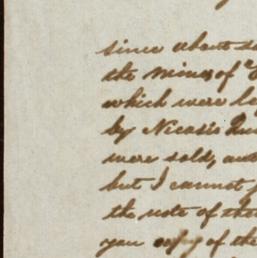 since about
the mines of
which were
by Nicasio
were sold, and
but I cannot
the note of the
you copy of the